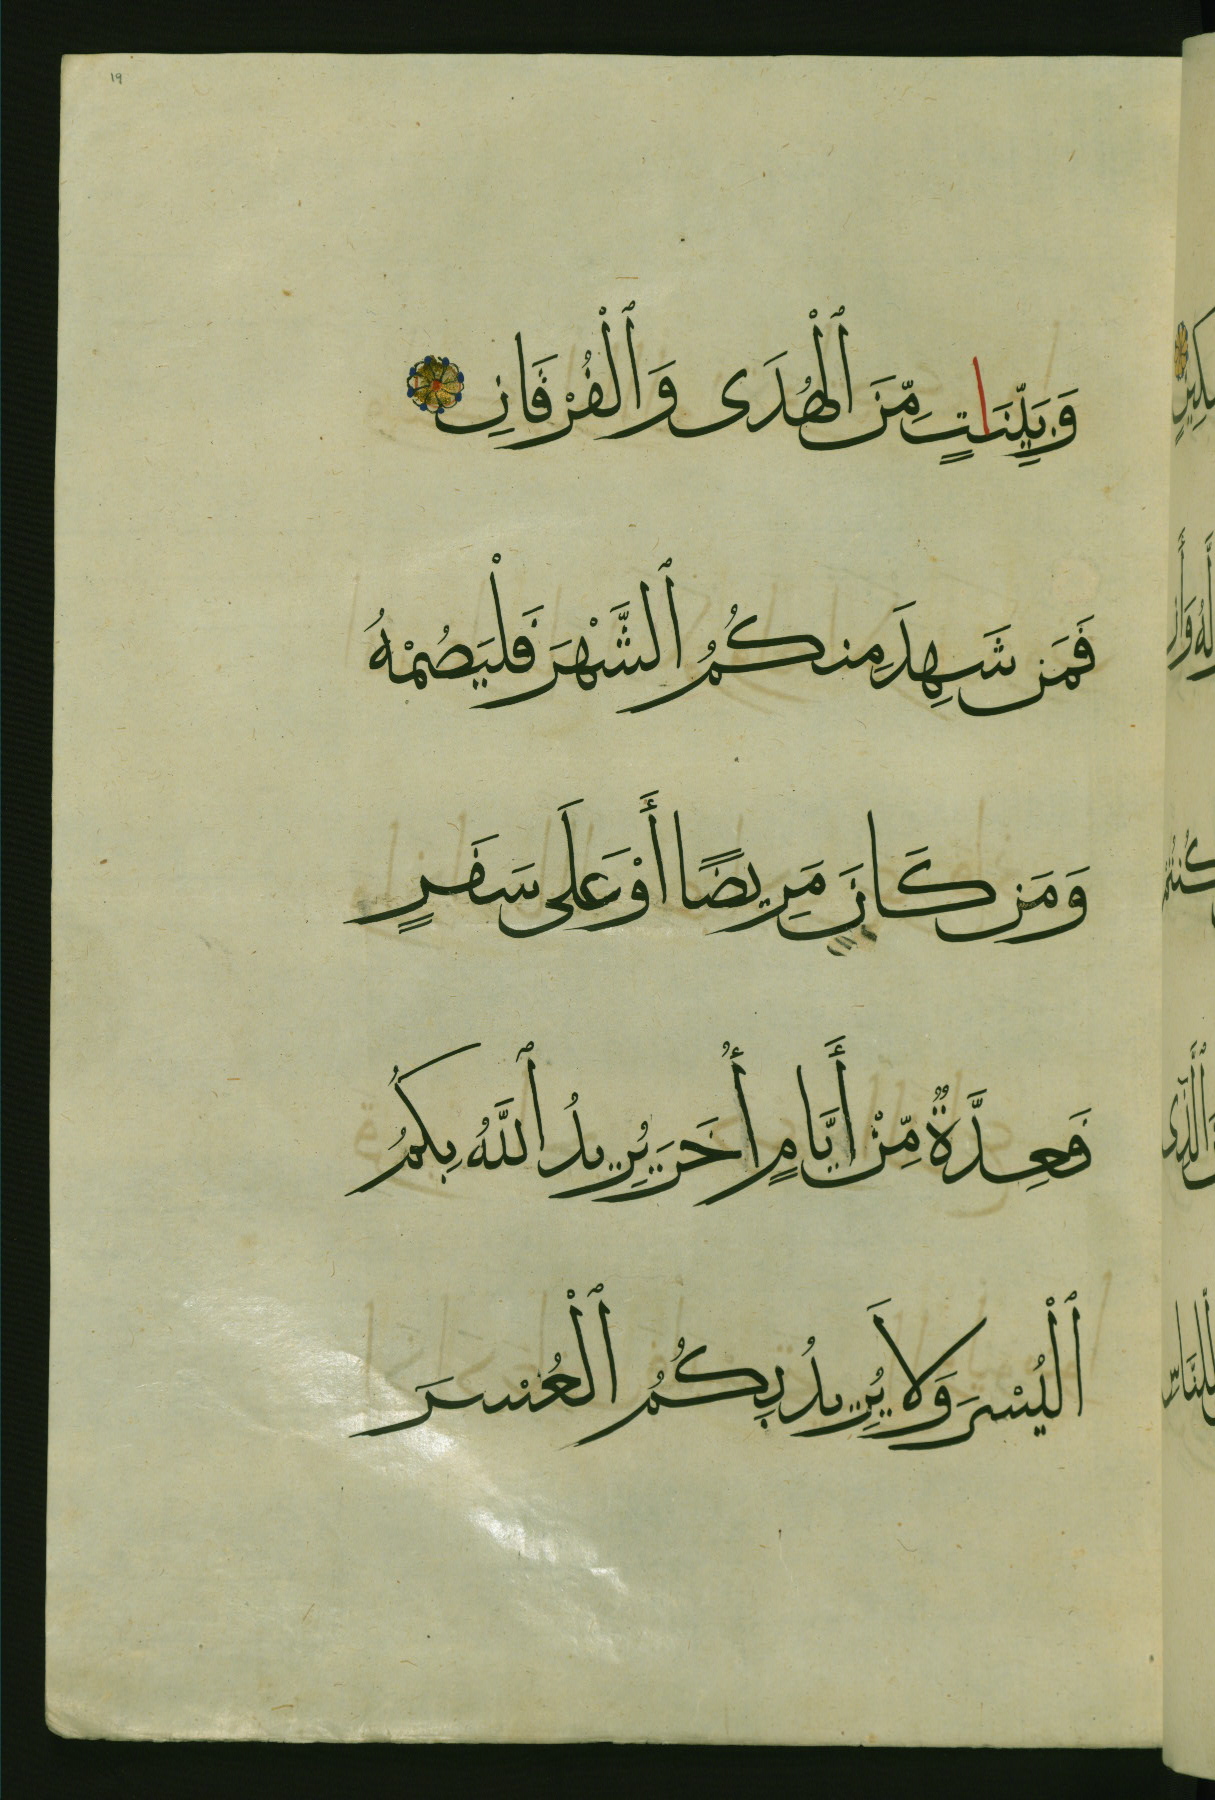 ١٩
وَبَيِّنَاتٍ مِّنَ ٱلْهُدَى وَٱلْفُرْقَانِ
فَمَن شَهِدَ مِنكُمُ ٱلشَّهْرَ فَلْيَصُمْهُ
وَمَن كَانَ مَرِيضًا أَوْ عَلَى سَفَرٍ
فَعِدَّةٌ مِّنْ أَيَّامٍ أُخَرَ يُرِيدُ ٱللَّهُ بِكُمُ
ٱلْيُسْرَ وَلَا يُرِيدُ بِكُمُ ٱلْعُسْرَ